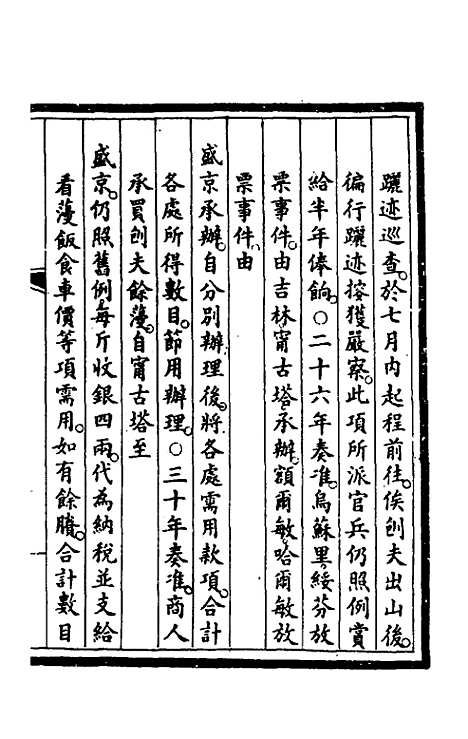 躧迹巡查。於七月內起程前往。俟刨夫出山後。
徧行躧迹搜獲嚴察。此項所派官兵仍照例賞
給半年俸餉。○二十六年奏准。烏蘇里、綏芬放
票事件。由吉林甯古塔承辦。額爾敏哈爾敏放
票事件、由
盛京承辦。自分別辦理後。將各處需用款項。合計
各處所得數目。節用辦理。○三十年奏准。商人
承買刨夫餘蓡。自甯古塔至
盛京。仍照舊例。每斤收銀四兩。代為納稅並支給
看蓡飯食車價等項需用。如有餘賸。合計數目